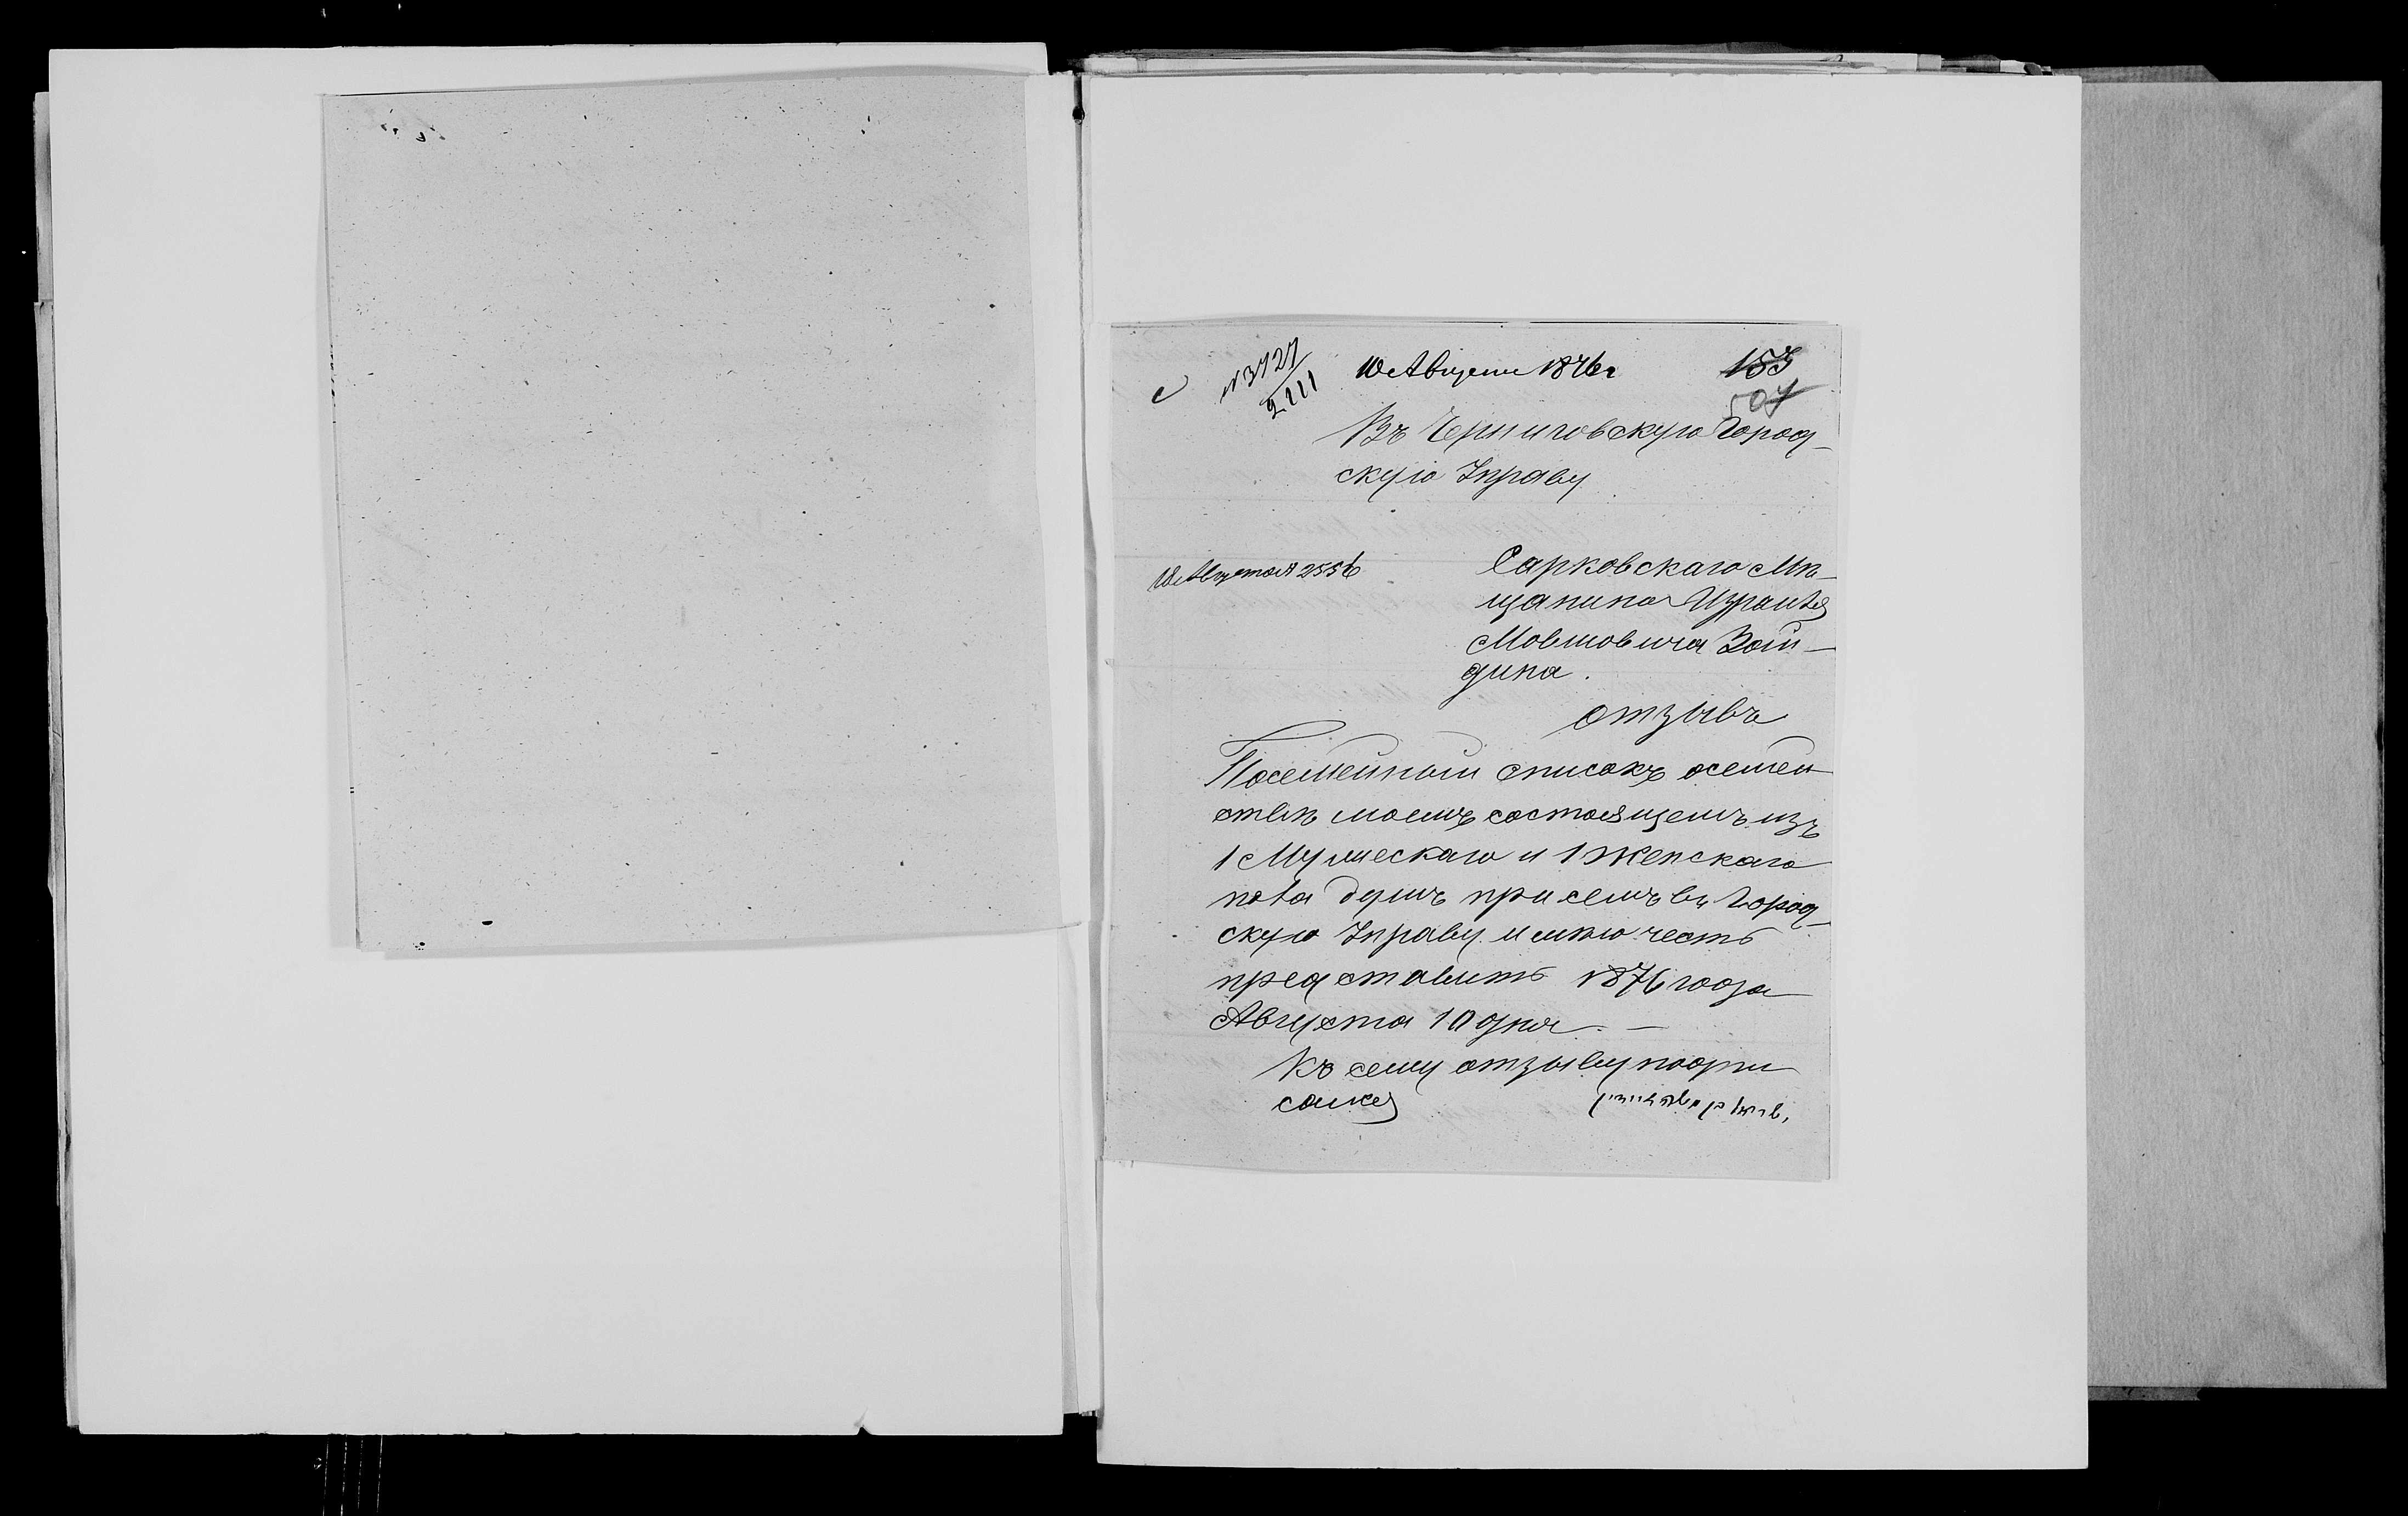 №3727
2111
10 Августа 1876 г
153
507
Въ Черниговскую Город-
скую Управу
10 Августа № 2556
Сарковскаго Мѣ-
щанина Израиля
Мовшовича Зай-
дина.
отзывъ
Посемейный списокъ осемей
ствѣ моемъ состоящемъ изъ
1 Мужескаго и 1 Женскаго
пола душъ при семъ въ Город-
скую Управу имѣю честь
представить 1876 года
Августа 10 дня. —
Къ сему отзыву подпи
сался